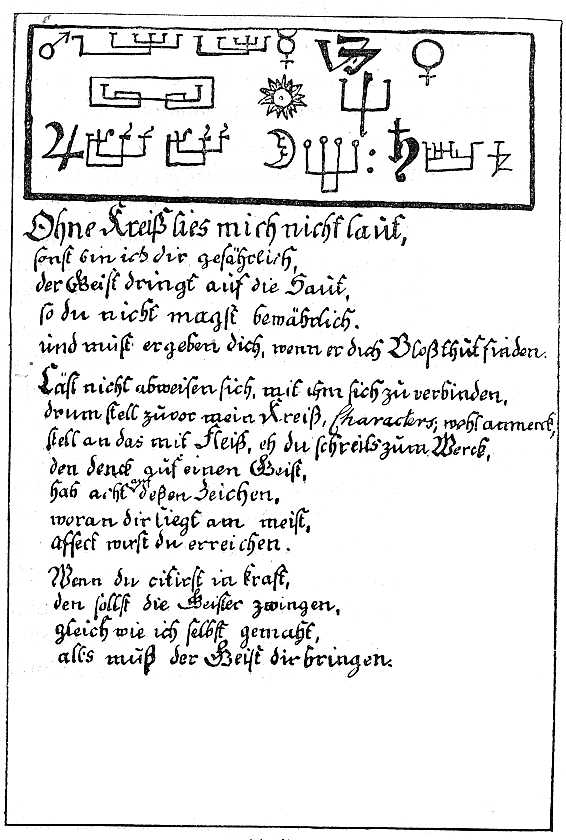 Ohne Kreiß lies mich nicht laut,
sonst bin ich dir gefährlich,
der Geist dringt auf die Haut,
so du nicht magst bewährlich.
und must ergeben dich, wenn er dich Bloß thut finden.
Läst nicht abweisen sich, mit ihm sich zu verbinden,
drum stell zuvor mein Kreiß, Characters, wohl anmerck,
stell an das mit Fleiß, eh du schreits zum Werck,
den denck auf einen Geist,
hab acht auf deßen Zeichen,
woran dir liegt am meist,
affect wirst du erreichen.
Wenn du citirst in kraft,
den sollst die Geister zwingen,
gleich wie ich selbst gemacht,
alls muß der Geist dir bringen.